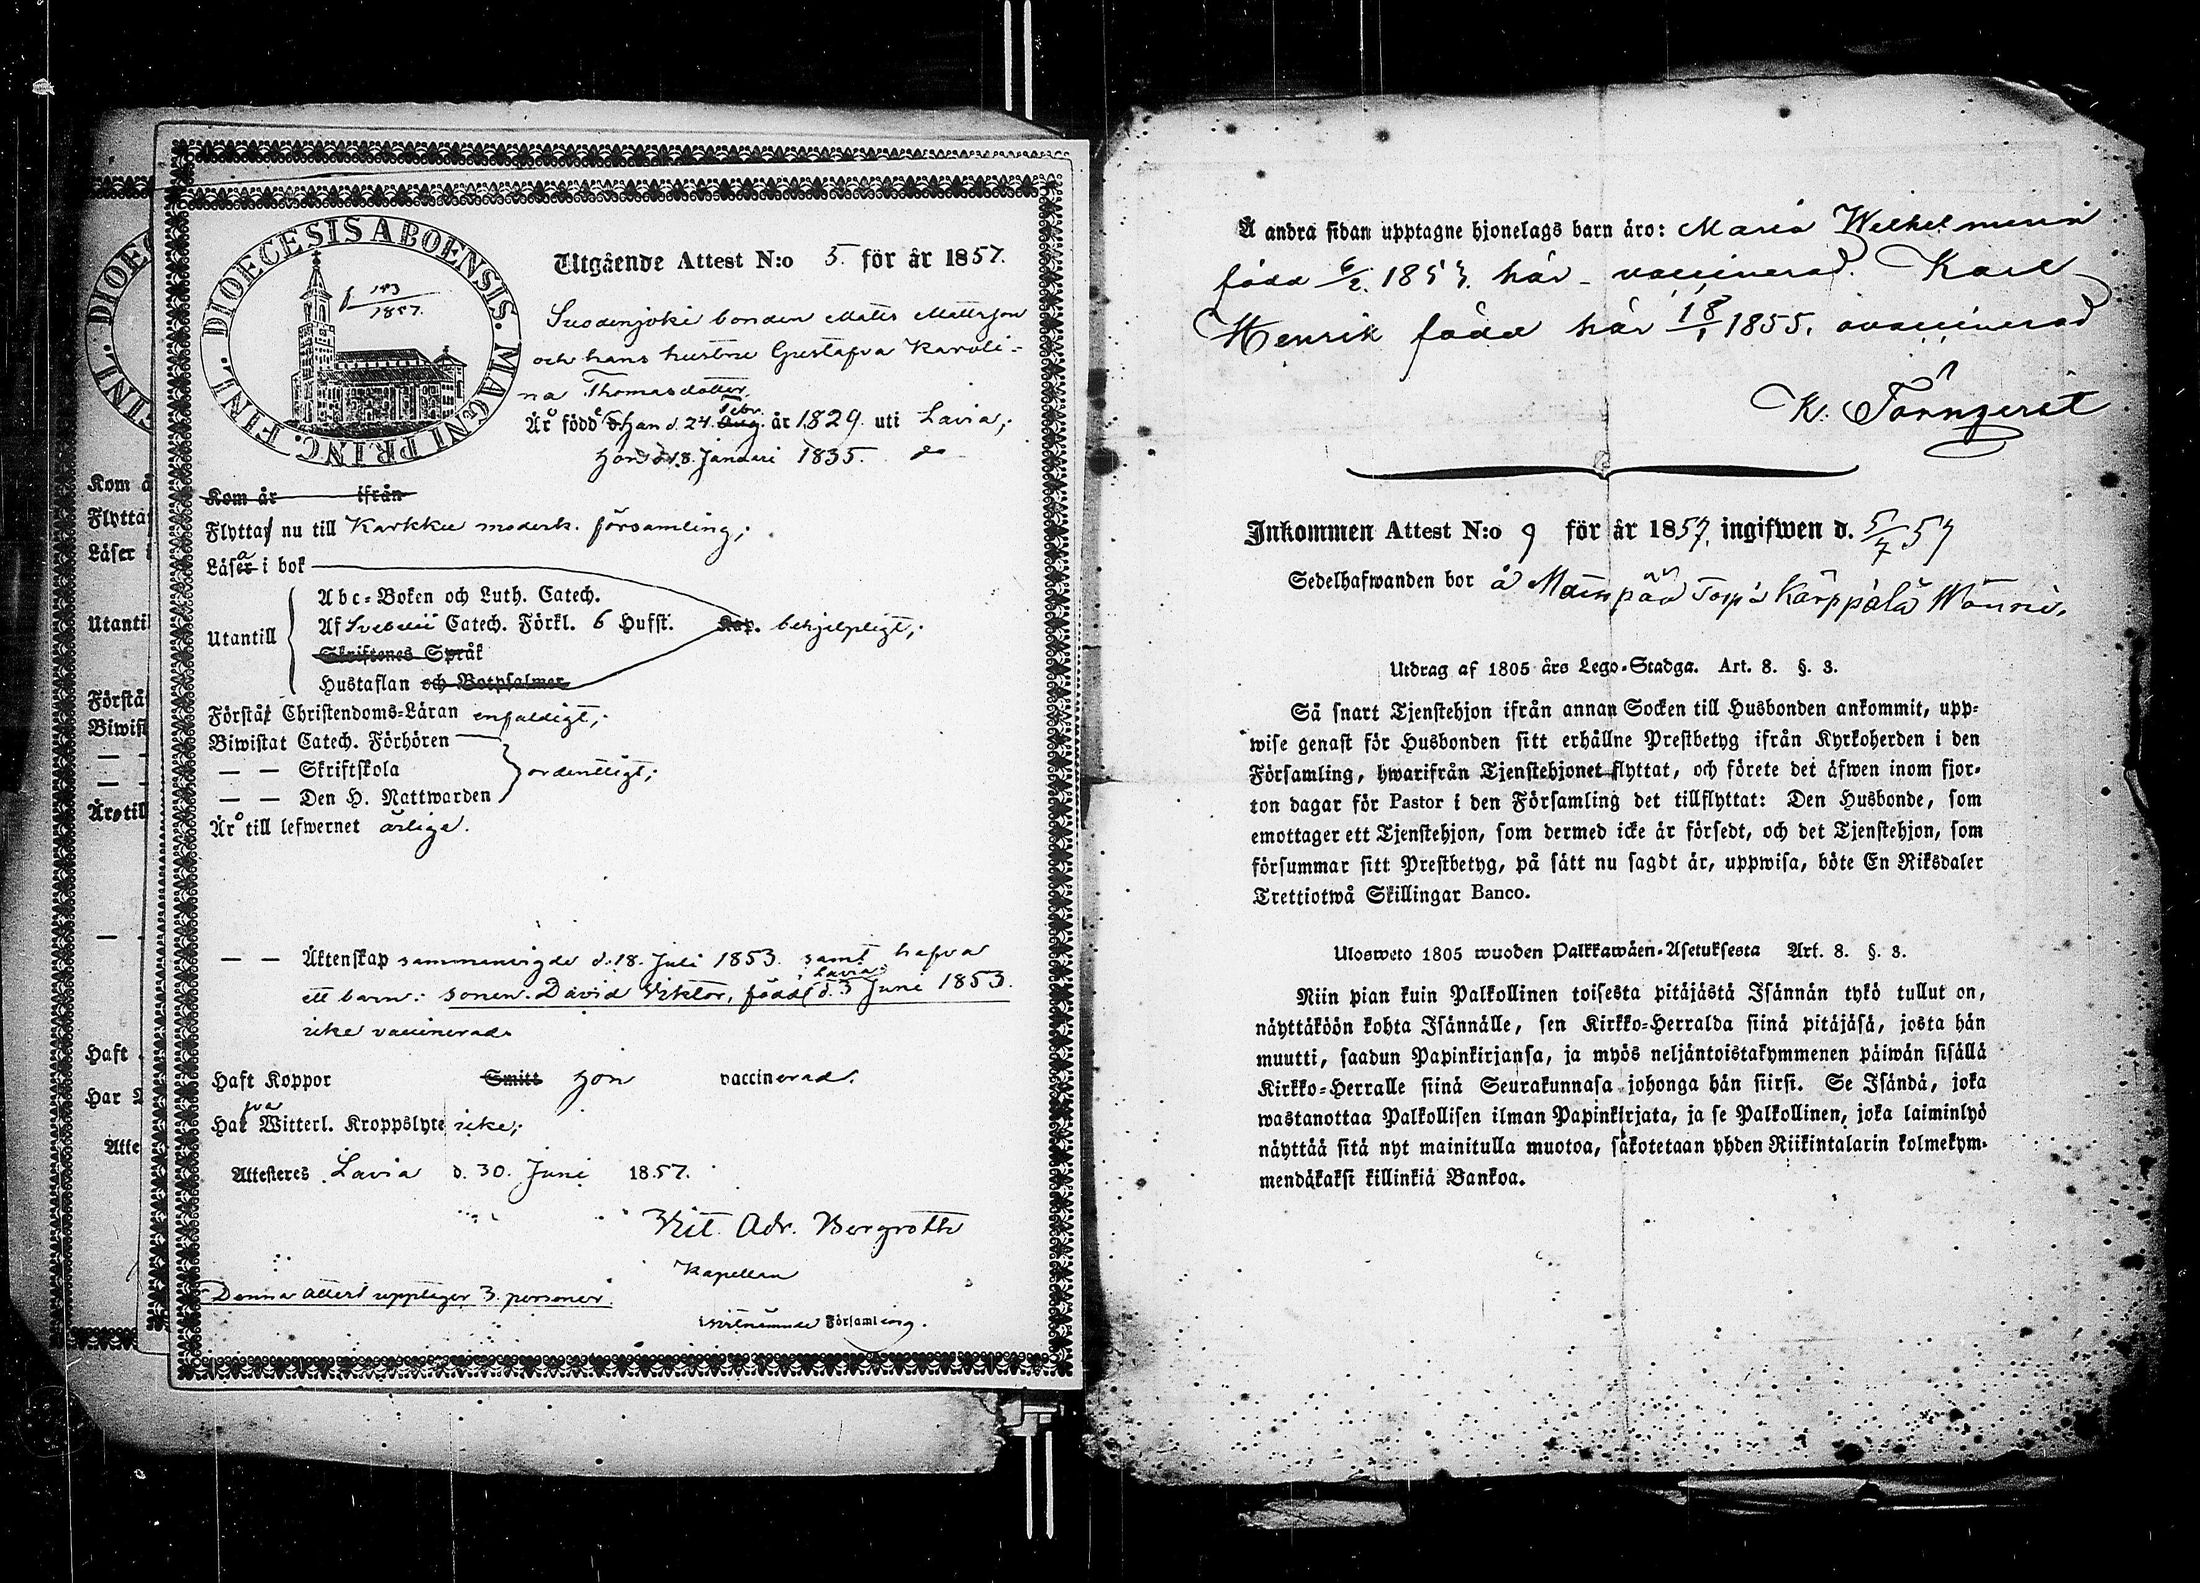 DIOECESIS ABOENSIS. MAGNI PRINC. FINL.
1857.
Utgående Attest N:o 5. för år 1857.
Suodenjoki bonden Matts Mattsson
och hans hustru Gustafva Karoli-
na Thomasdotter.
Febr.
Är född han d. 24. Aug. år 1829. uti Lavia;
Hon d. 18. Januari 1835. do
Kom år ifrån
Flyttat nu till Karkku moderk. församling;
Läser i bok
Abc-Boken och Luth. Catech.
Utantill Af Svebelii Catech. Förkl. 6 Hufst. Kap. behjelpligt;
Skriftenes Språk
Hustaflan och Botpsalmer
Förstår Christendoms-Läran enfaldigt;
Biwistat Catech. Förhören
— — Skriftskola ordentligt;
— — Den H. Nattwarden
Är till lefwernet ärliga.
— — Äktenskap sammanvigde d. 18. Juli 1853. samt hafva
Lavia
ett barn: sonen David Viktor, född d. 3 Juni 1853.
icke vaccinerad
Haft Koppor Smitt Hon vaccinerad.
fva
Har Witterl. Kroppslyte icke;
Attesteres Lavia d. 30. Juni 1857.
Vit. Adr. Bergroth
Kapellan
Denna attest upptager 3. personer.
i Församling.
Kom å
Flytta
Läser i
Utantill
Förstå
Biwist
— —
— —
Är till
—
Haft
Har
Atte
Å andra sidan upptagne hjonelags barn äro: Maria Wilhelmina
född 6/2. 1853. här - vaccinerad. Karl
Henrik född här 18/1 1855. ovaccinerad
K. Törnqvist
Inkommen Attest N:o 9 för år 1857. ingifwen d. 5/7 57
Sedelhafwanden bor å Torp
Utdrag af 1805 års Lego-Stadga. Art. 8. §. 3.
Så snart Tjenstehjon ifrån annan Socken till Husbonden ankommit, upp-
wise genast för Husbonden sitt erhållne Prestbetyg ifrån Kyrkoherden i den
Församling, hwarifrån Tjenstehjonet flyttat, och förete det äfwen inom fjor-
ton dagar för Pastor i den Församling det tillflyttat: Den Husbonde, som
emottager ett Tjenstehjon, som dermed icke är försedt, och det Tjenstehjon, som
försummar sitt Prestbetyg, på sätt nu sagdt är, uppwisa, böte En Riksdaler
Trettiotwå Skillingar Banco.
Ulosweto 1805 wuoden Palkkawäen-Asetuksesta Art. 8. §. 3.
Niin pian kuin Palkollinen toisesta pitäjästä Isännän tykö tullut on,
näyttäköön kohta Isännälle, sen Kirkko-Herralda siinä pitäjäsä, josta hän
muutti, saadun Papinkirjansa, ja myös neljäntoistakymmenen päiwän sisällä
Kirkko-Herralle siinä Seurakunnasa johonga hän siirsi. Se Isändä, joka
wastanottaa Palkollisen ilman Papinkirjata, ja se Palkollinen, joka laiminlyö
näyttää sitä nyt mainitulla muotoa, sakotetaan yhden Riikintalarin kolmekym-
mendäkaksi killinkiä Bankoa.